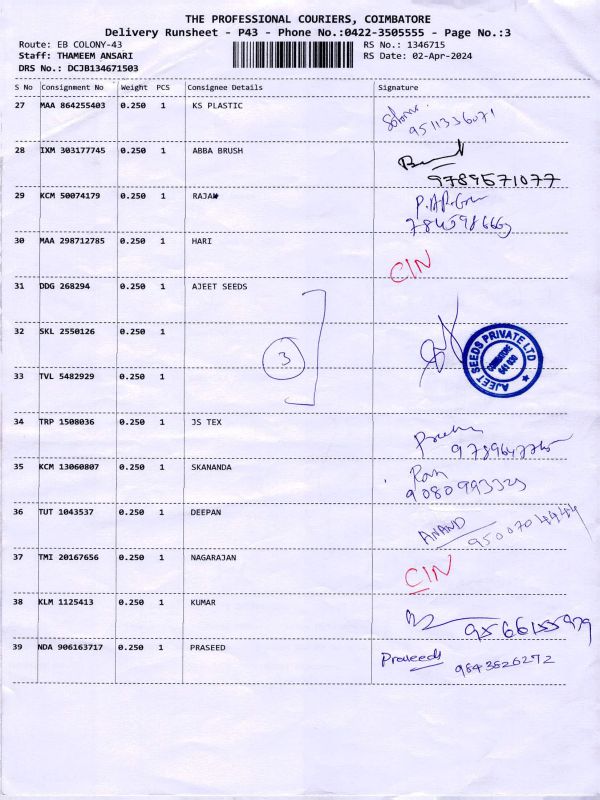 THE PROFESSIONAL COURIERS, COIMBATORE
Delivery Runsheet - P43 - Phone No.:0422-3505555 - Page No.:3
Route: EB COLONY-43 RS No.: 1346715
Staff: THAMEEM ANSARI RS Date: 02-Apr-2024
DRS No.: DCJB134671503
S No Consignment No Weight PCS Consignee Details Signature
27 MAA 864255403 0.250 1 KS PLASTIC
9511336071
28 IXM 303177745 0.250 1 ABBA BRUSH
9789571077
29 KCM 50074179 0.250 1 RAJAN
30 MAA 298712785 0.250 1 HARI
CIN
31 DDG 268294 0.250 1 AJEET SEEDS
32 SKL 2550126 0.250 1
3
AJEET SEEDS PRIVATE LTD
COIMBATORE
641 030
33 TVL 5482929 0.250 1
34 TRP 1508036 0.250 1 JS TEX
35 KCM 13060807 0.250 1 SKANANDA
36 TUT 1043537 0.250 1 DEEPAN
ANAND
37 TMI 20167656 0.250 1 NAGARAJAN
CIN
38 KLM 1125413 0.250 1 KUMAR
39 NDA 906163717 0.250 1 PRASEED
Praseeds 9843626272